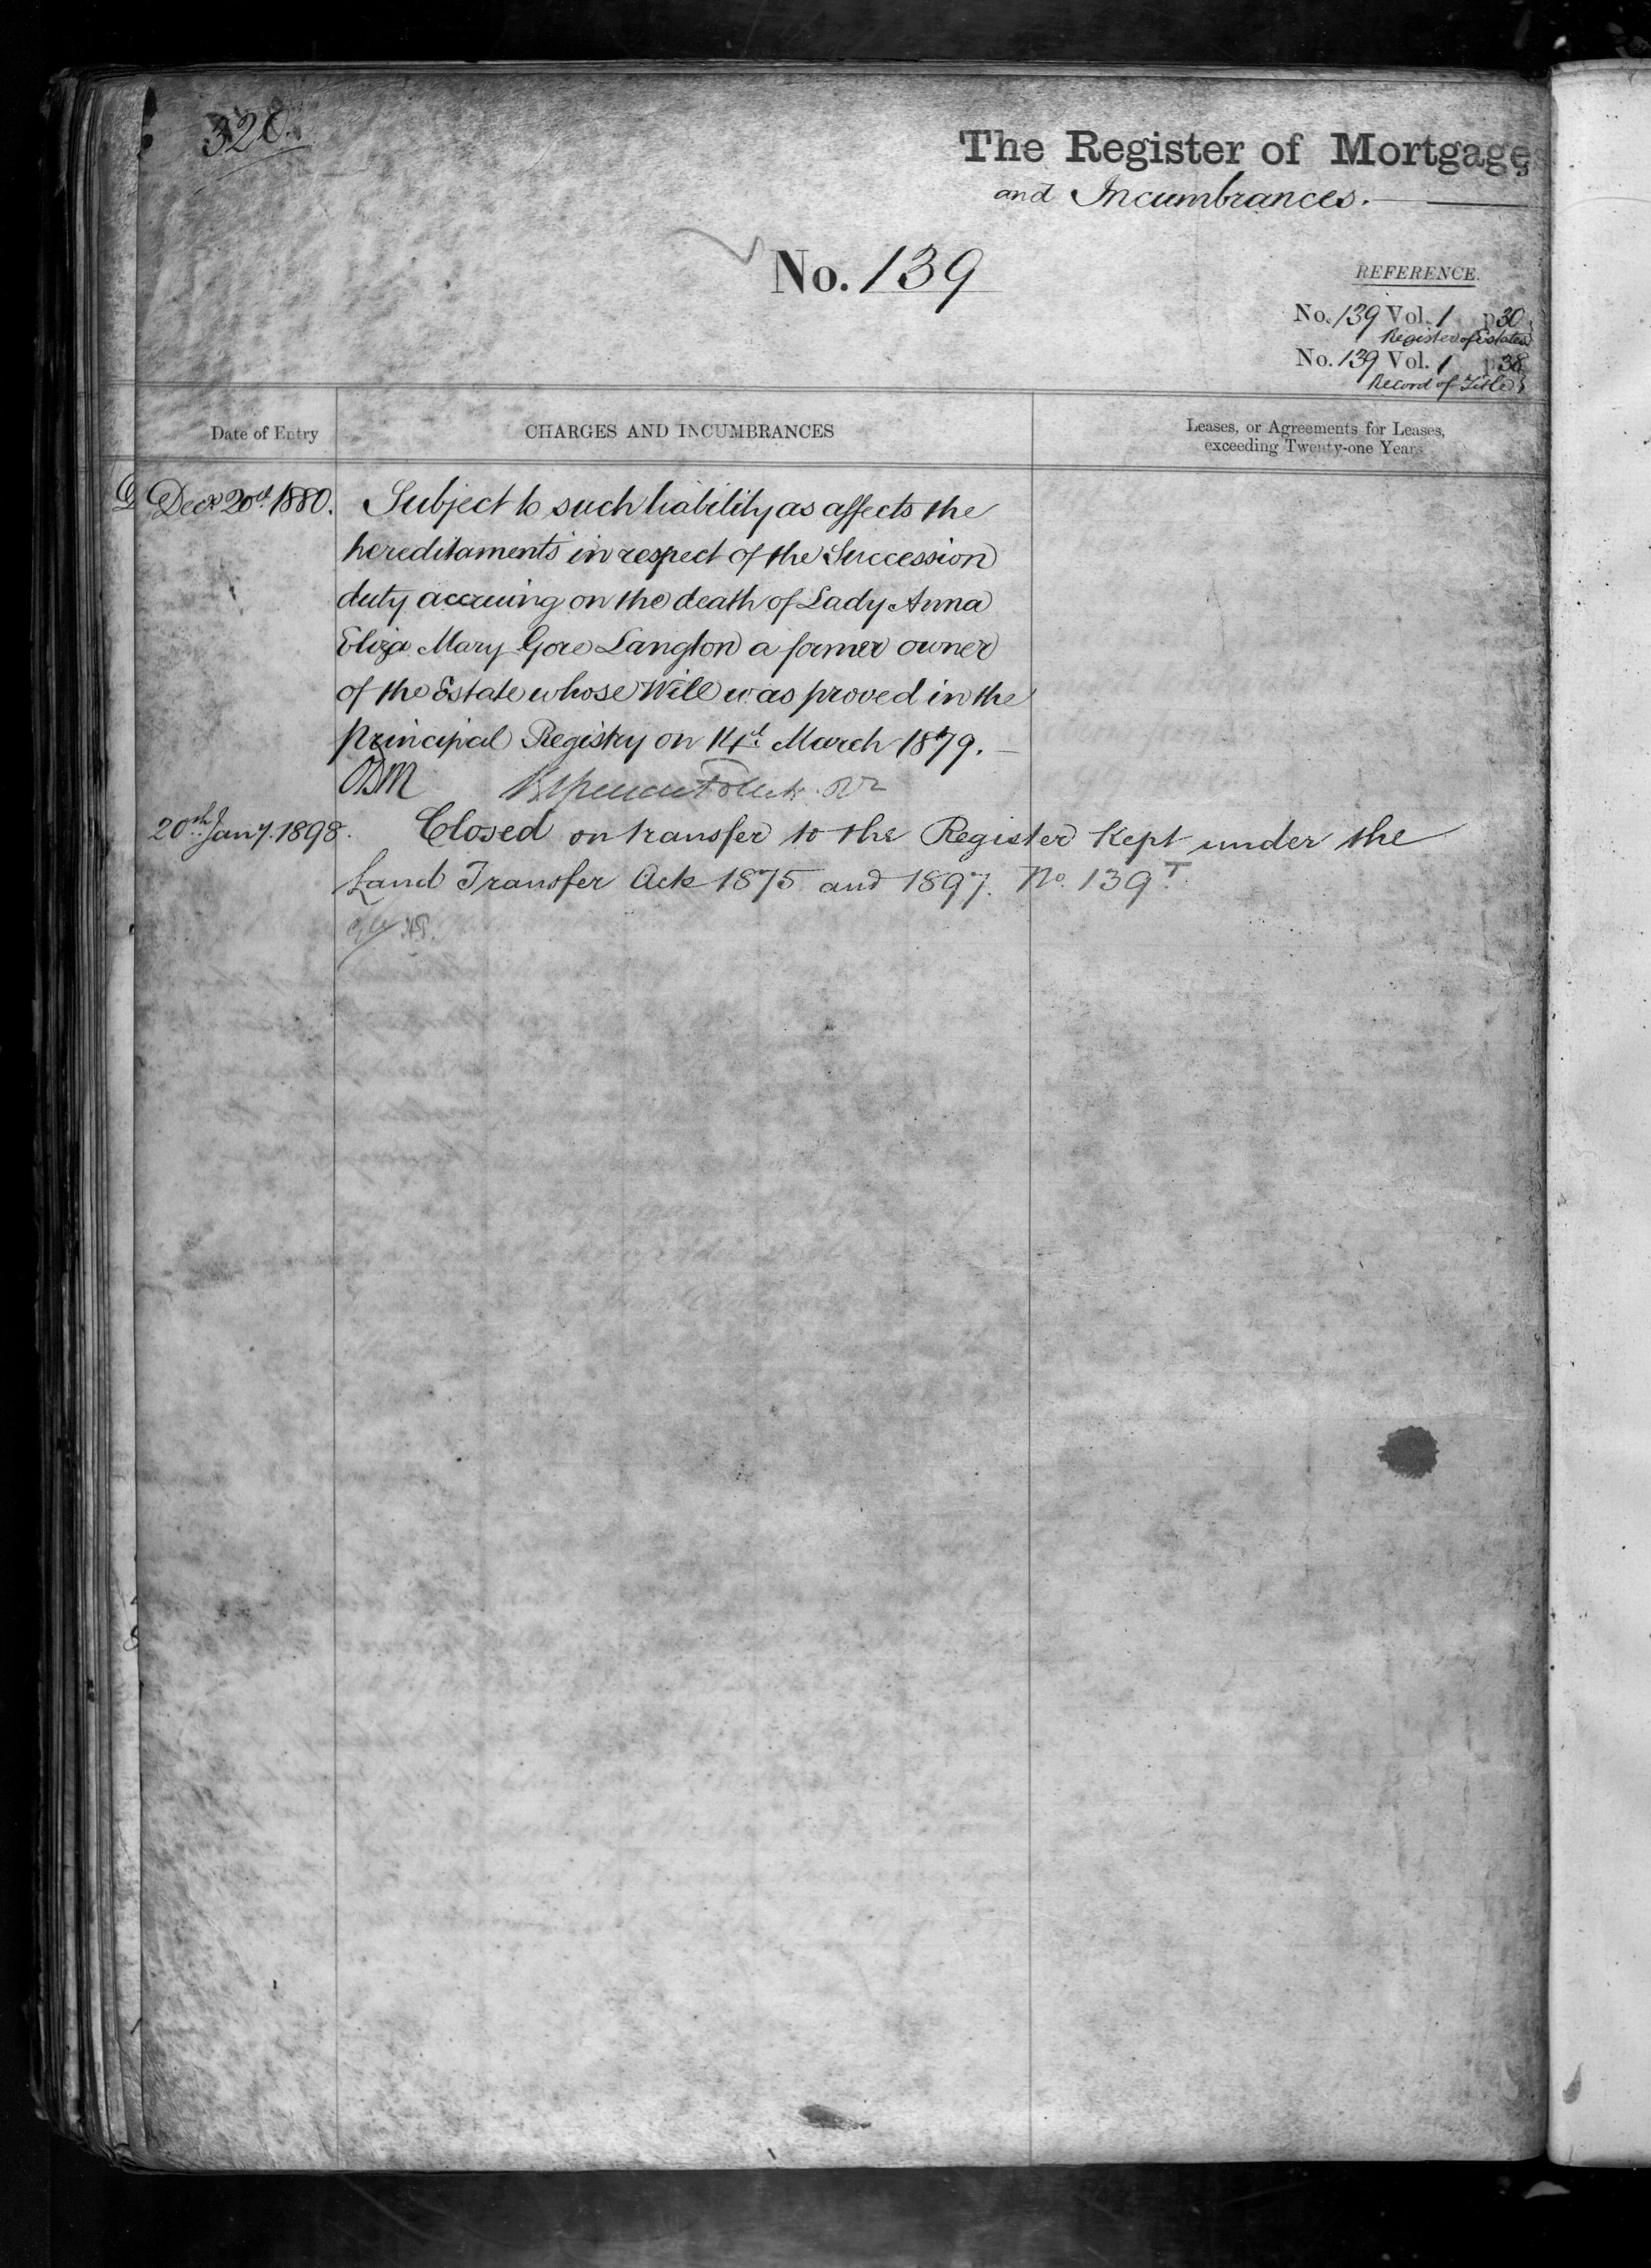 320.
The Register of Mortgages
and Incumbrances.
No. 139
REFERENCE.
No. 139 Vol. 1 p 30
Register of Estates
No. 139 Vol. 1 p 38
Record of Title
Date of Entry
CHARGES AND INCUMBRANCES
Leases, or Agreements for Leases,
exceeding Twenty-one Years
Decr 20th 1880.
Subject to such liability as affects the
hereditaments in respect of the Succession
duty accruing on the death of Lady Anna
Eliza Mary Gore Langton a former owner
of the Estate whose Will was proved in the
principal Registry on 14th March 1879.
20th Jany. 1898.
Closed on transfer to the Register kept under the
Land Transfer Acts 1875 and 1897. No. 139 T.